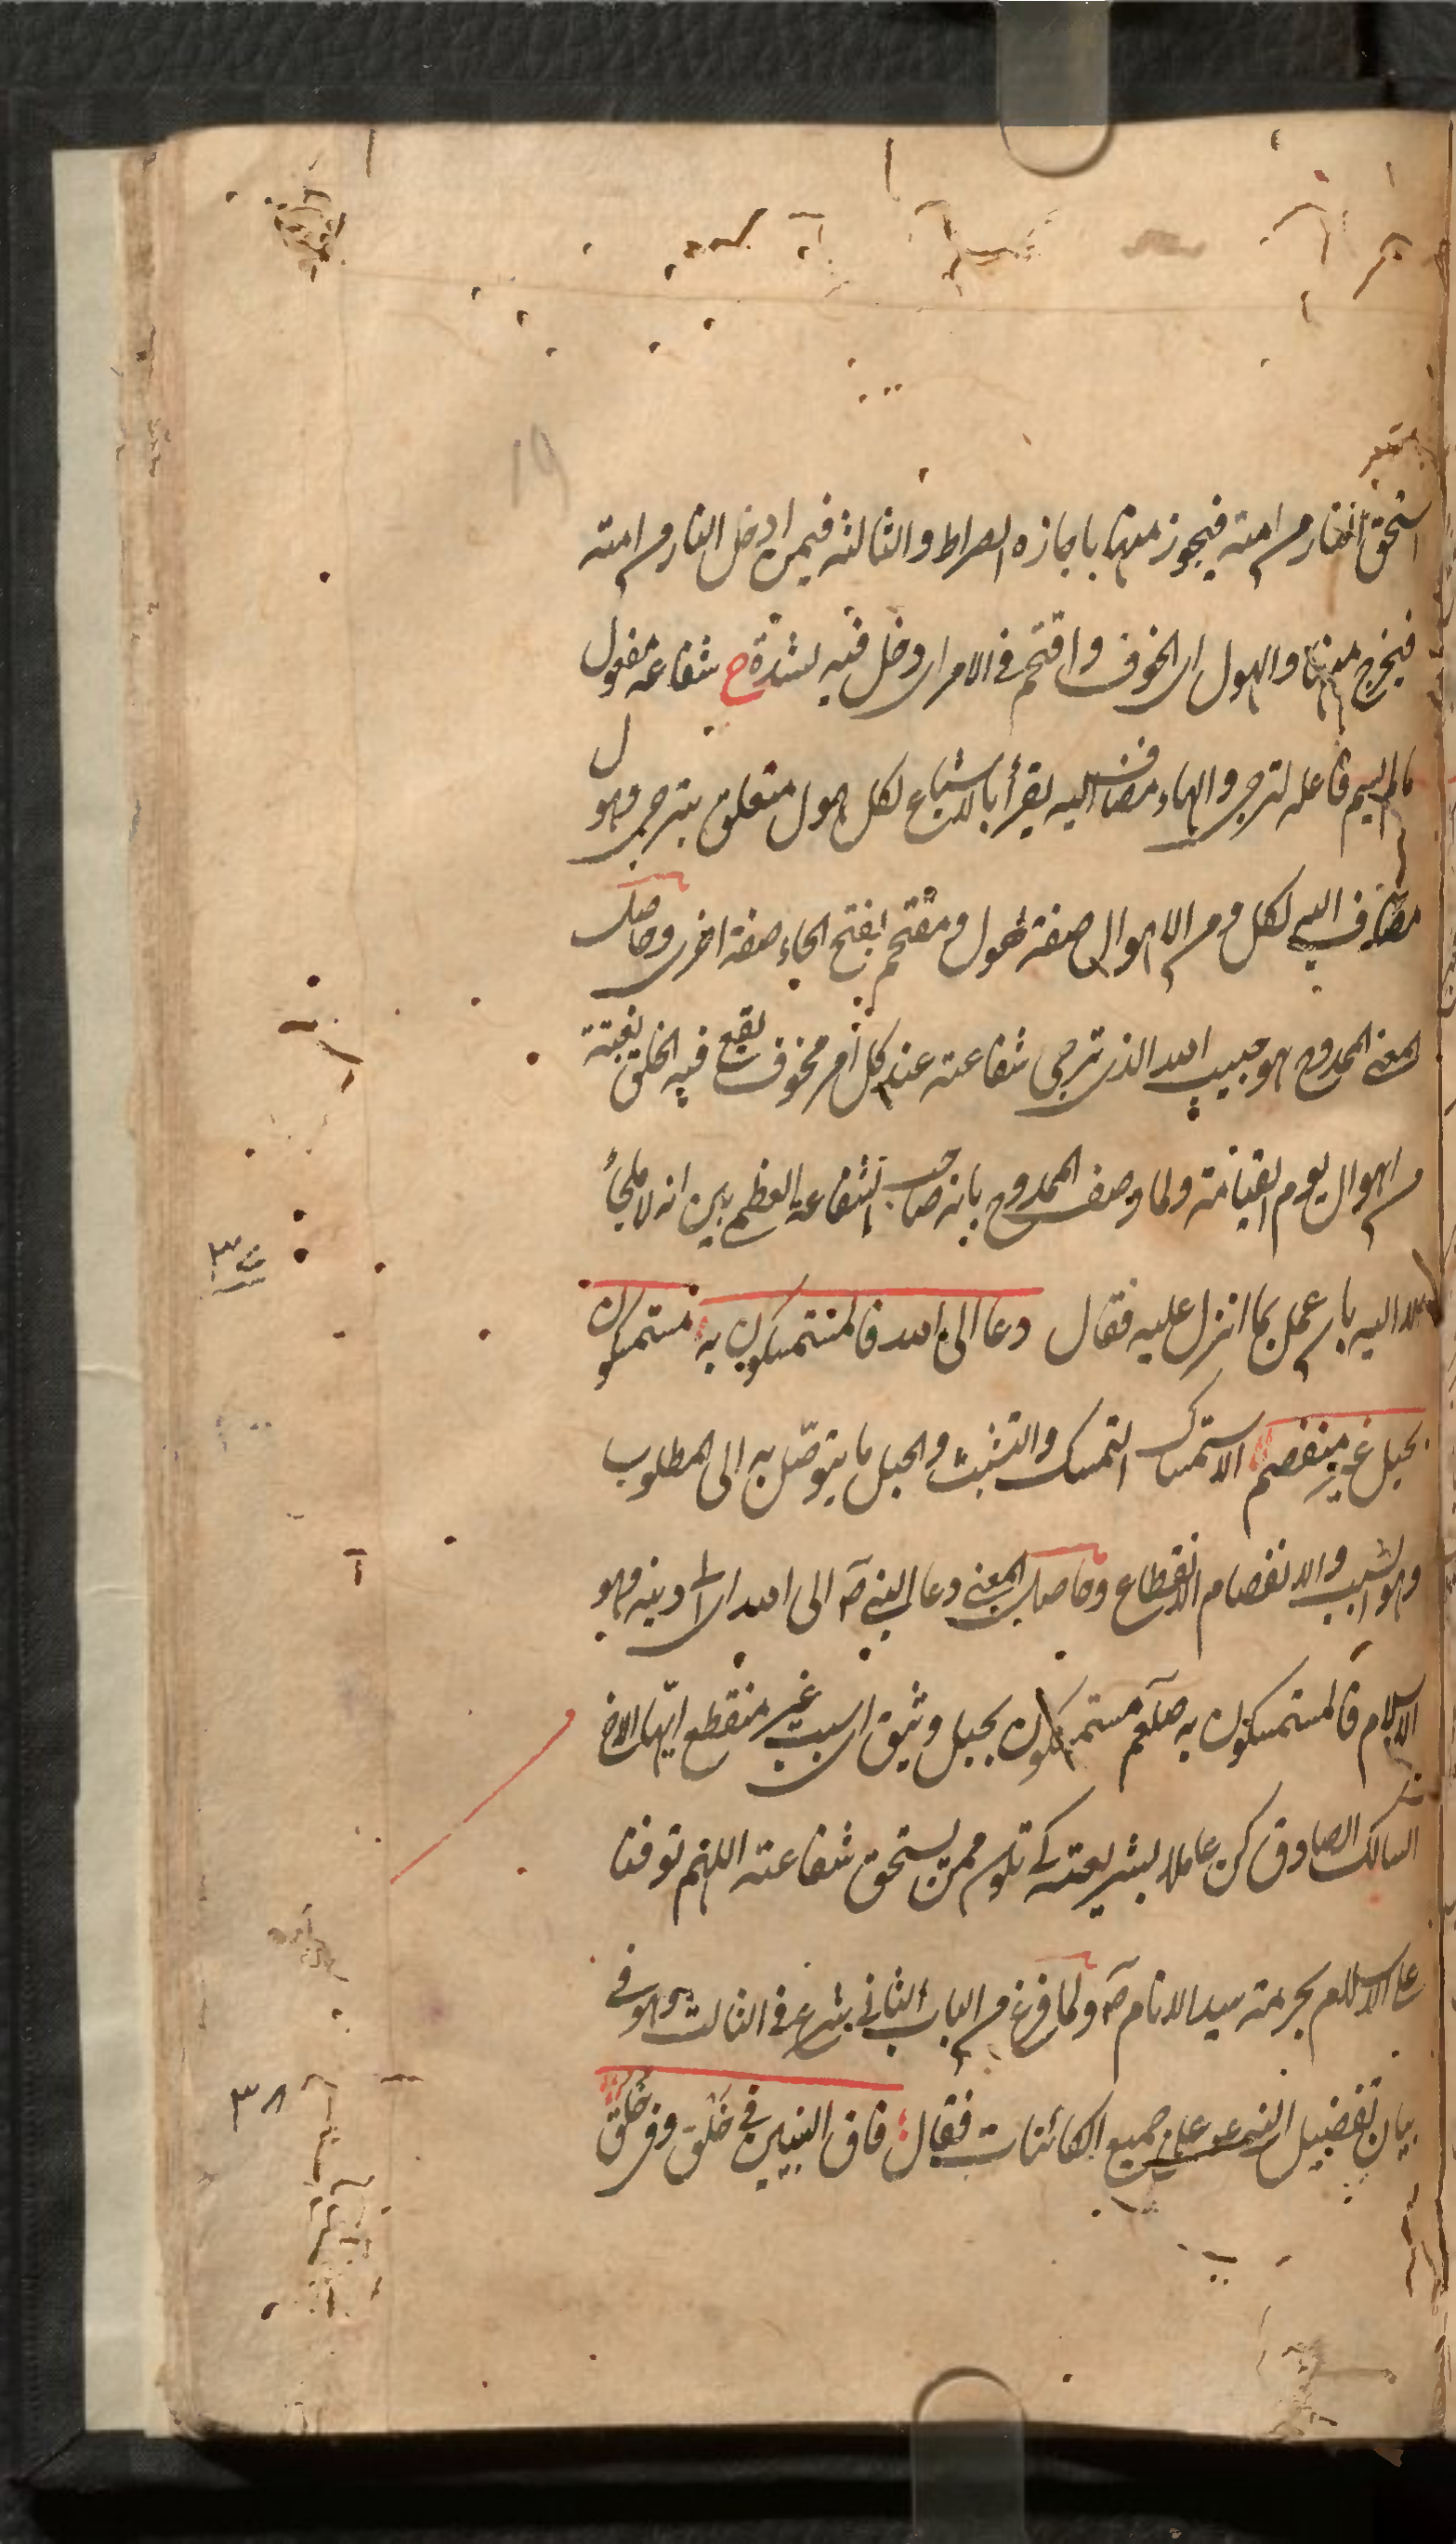 ١٩
استحق النار من امته فيجوز منها باجازه الصراط والثالثه فيمن ادخل النار من امته
فيخرج منها والهول اى الخوف واقتحم فى الامر اى دخل فيه بشدة ح شفاعته مفعول
ما لم يسم فاعله لترجى والهاء مضاف اليه يقرأ بالاشباع لكل هول متعلق بترجى وهو
مضاف اليه لكل و من الاهوال صفة هول و مقتحم بفتح الحاء صفة اخرى وحاصل
المعنى الممدوح هو حبيب الله الذى ترجى شفاعته عند كل أمر مخوف يقع فيه الخلق بغتة
من اهوال يوم القيامة ولما وصف الممدوح بانه صاحب الشفاعة العظمى بين انه لا ملجأ
الا اليه بان عمل بما انزل عليه فقال دعا الى الله فالمستمسكون به مستمسكون
٣٧
بحبل غير منفصم الاستمساك التمسك والتشبث والحبل ما يتوصّل به الى المطلوب
وهو السبب والانفصام الانقطاع وحاصل المعنى دعا النبى صم الى الله اى الى دينه وهو
الاسلام فالمستمسكون به صلعم مستمسكون بحبل وثيق اى سبب غير منقطع ايها الاخ
السالك الصادق كن عاملا بشريعته كى تكون ممن يستحق شفاعته اللهم توفنا
على الاسلام بحرمة سيد الانام صم ولما فرغ من الباب الثانى شرع فى الثالث وهو فى
بيان تفضيل النبى عم على جميع الكائنات فقال فاق النبيين فى خَلق وفى خُلق
٣٨